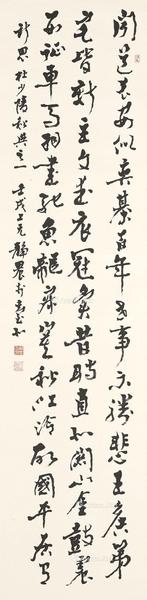 聞道長安似奕棊百年世事不勝悲王侯第
宅皆新主文武衣冠異昔時直北關山金鼓震
西征車馬羽書馳魚龍寂寞秋江冷故國平居有
所思 杜少陵秋興之一 壬戌上元靜農於台北